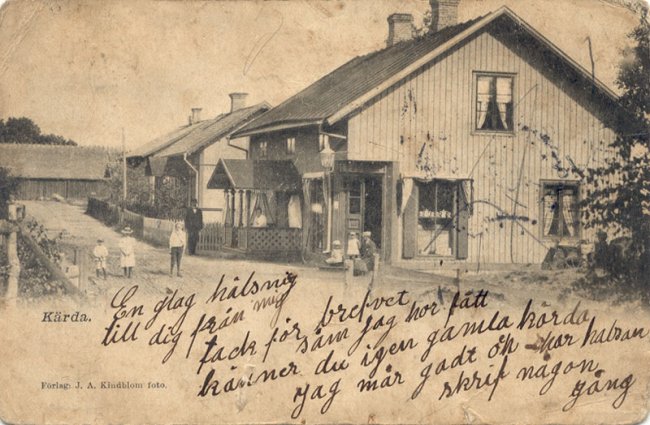 Kärda.
Förlag: J. A. Kindblom foto.
En glag hälsnig
till dig från mig
tack för brefvet
säm jag hor fått
känner du igen gamla kärda
jag mår godt åk har halsan
skrif någon
gång